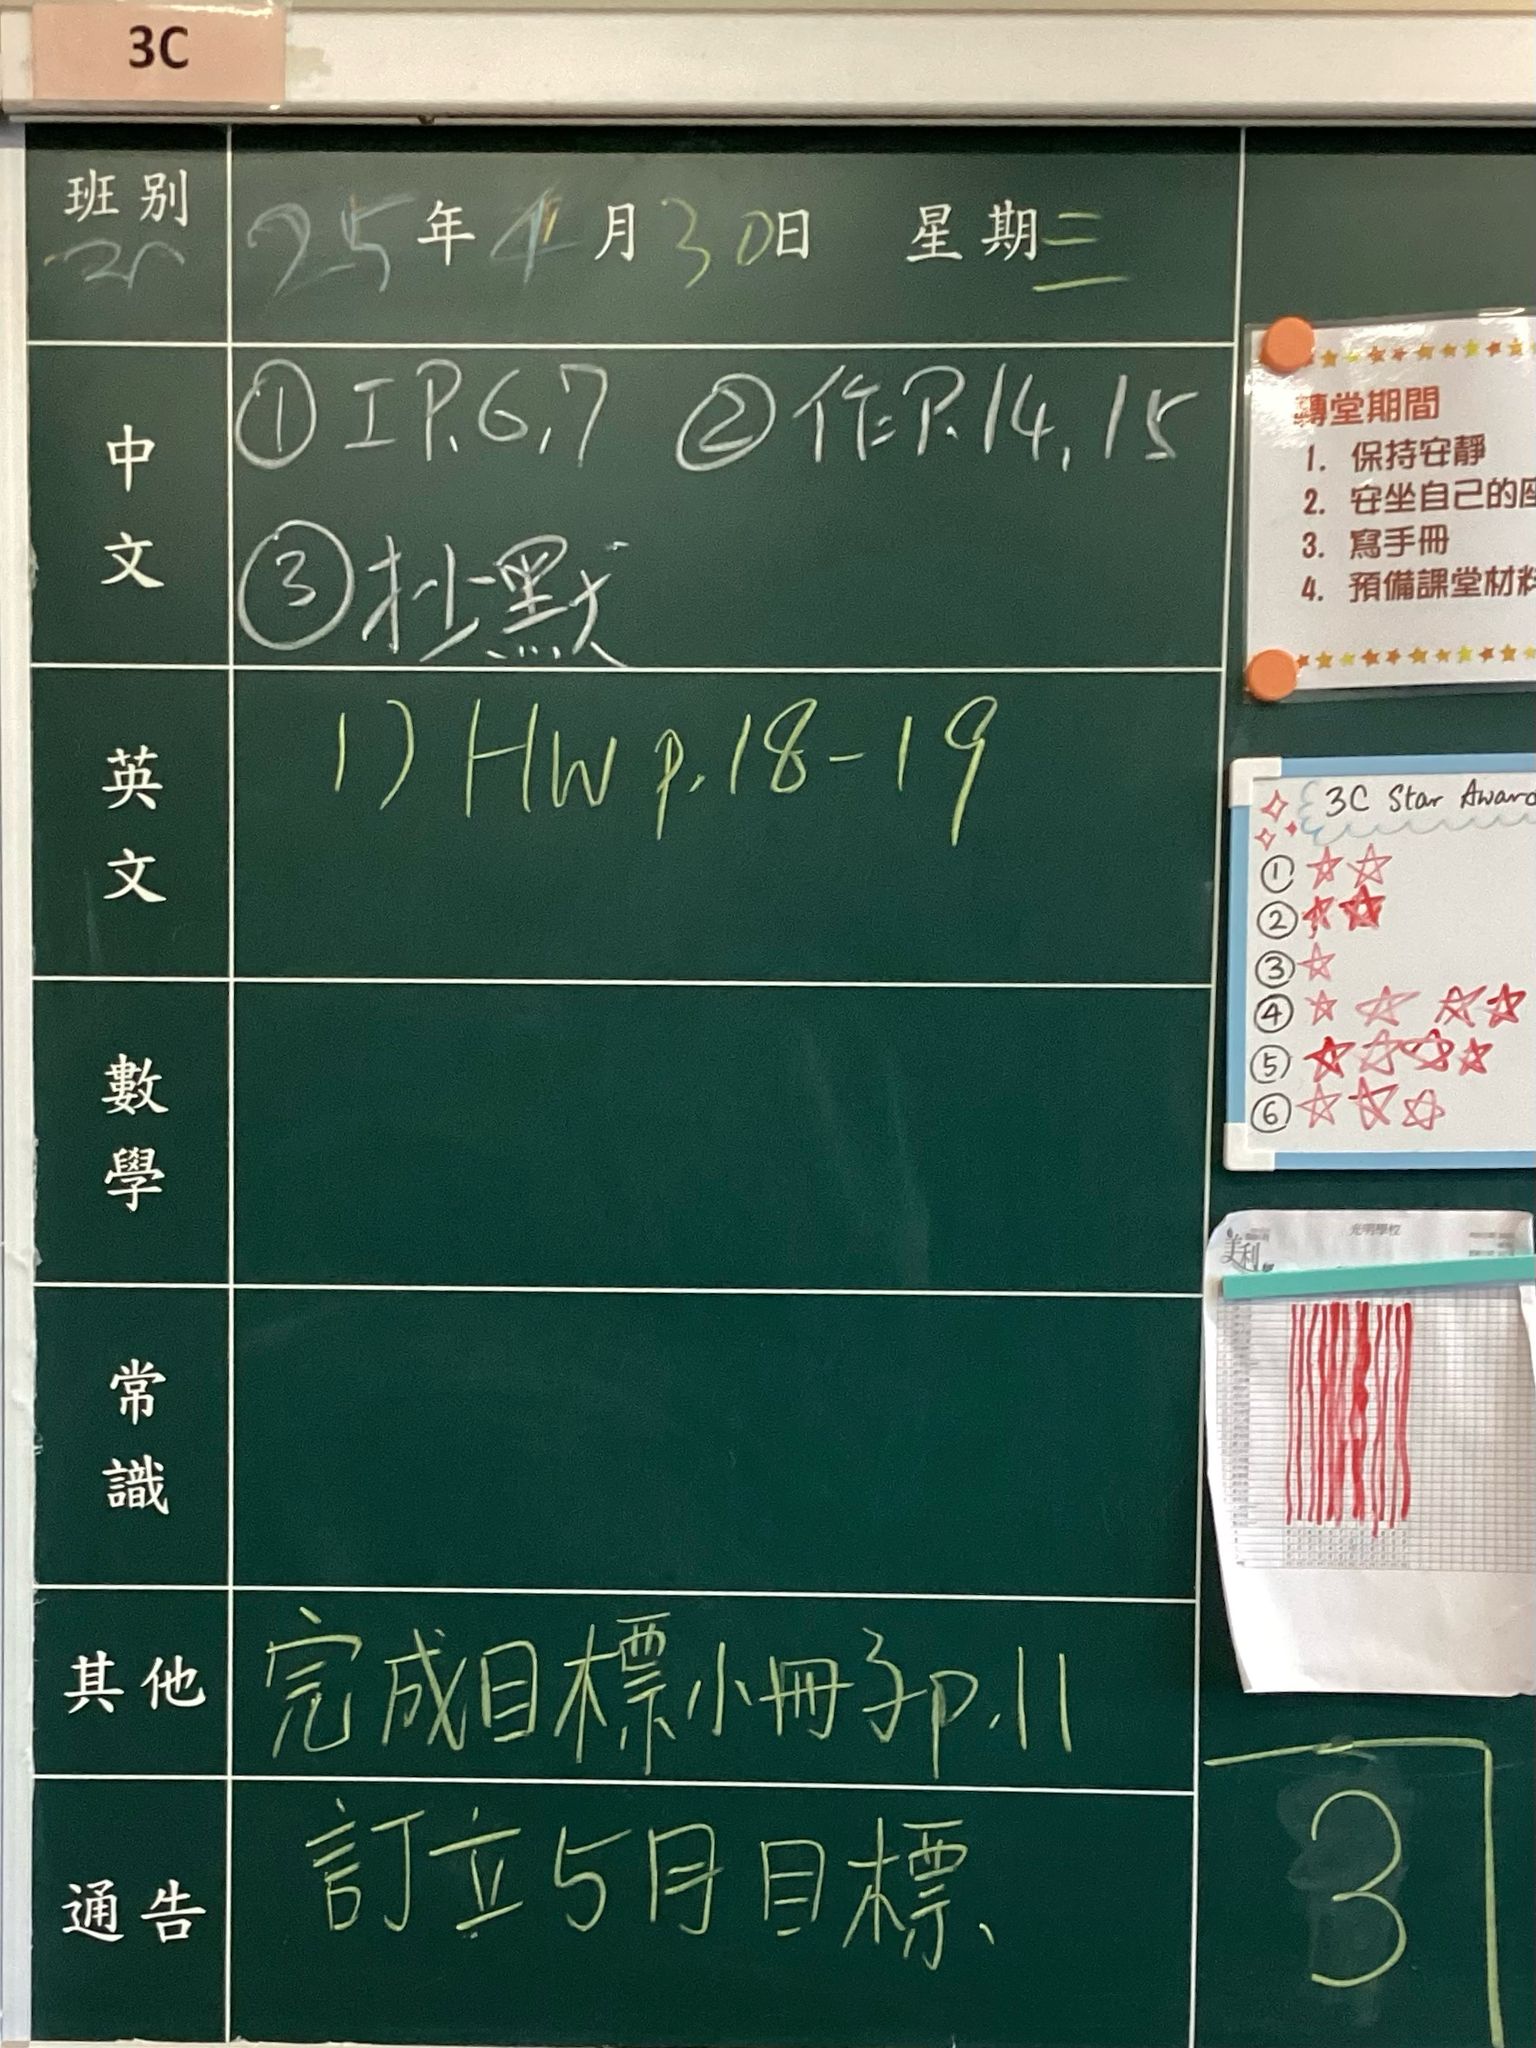 3C
班別
25年4月30日 星期三
中文
①工P.6,7 ②作P.14,15
③抄默
英文
1) HW p.18-19
數學
常識
其他
完成目標小冊子p.11
通告
訂立5月目標
轉堂期間
1. 保持安靜
2. 安坐自己的座
3. 寫手冊
4. 預備課堂材料
3C Star Award
①
②
③
④
⑤
⑥
光明學校
美利
3